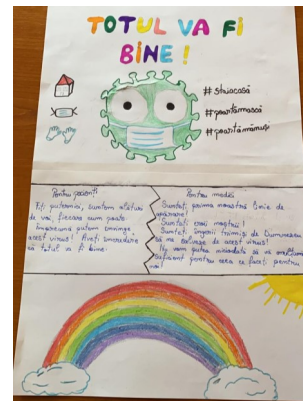 TOTUL VA FI
BINE!
#stăiacasă
#poartămască
#poartămănuși
Pentru pacienți
Fiți puternici, suntem alături
de voi, fiecare cum poate.
Împreună putem învinge
acest virus! Aveți încredere
că totul va fi bine.
Pentru medici
Sunteți prima noastră linie de
apărare!
Sunteți eroii noștri!
Sunteți îngerii trimiși de Dumnezeu
să ne salveze de acest virus!
Nu vom putea niciodată să vă mulțumim
suficient pentru ceea ce faceți pentru
noi!